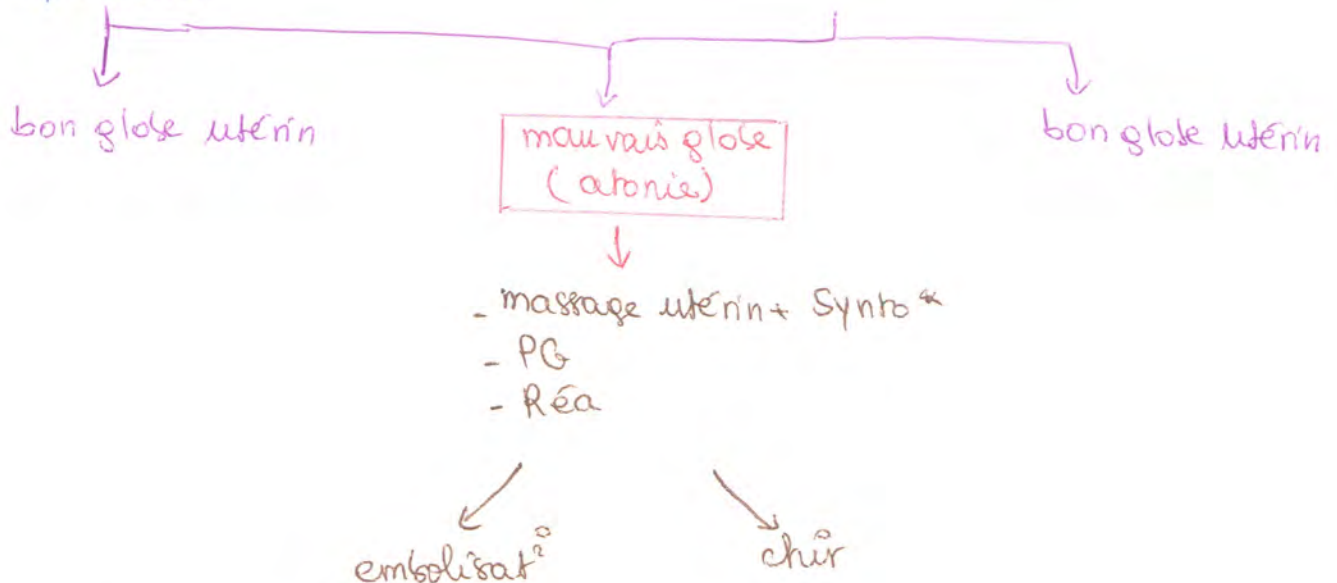 bon globe utérin
mauvais globe
(atonie)
bon globe utérin
- massage utérin + Synto*
- PG
- Réa
embolisat°
chir